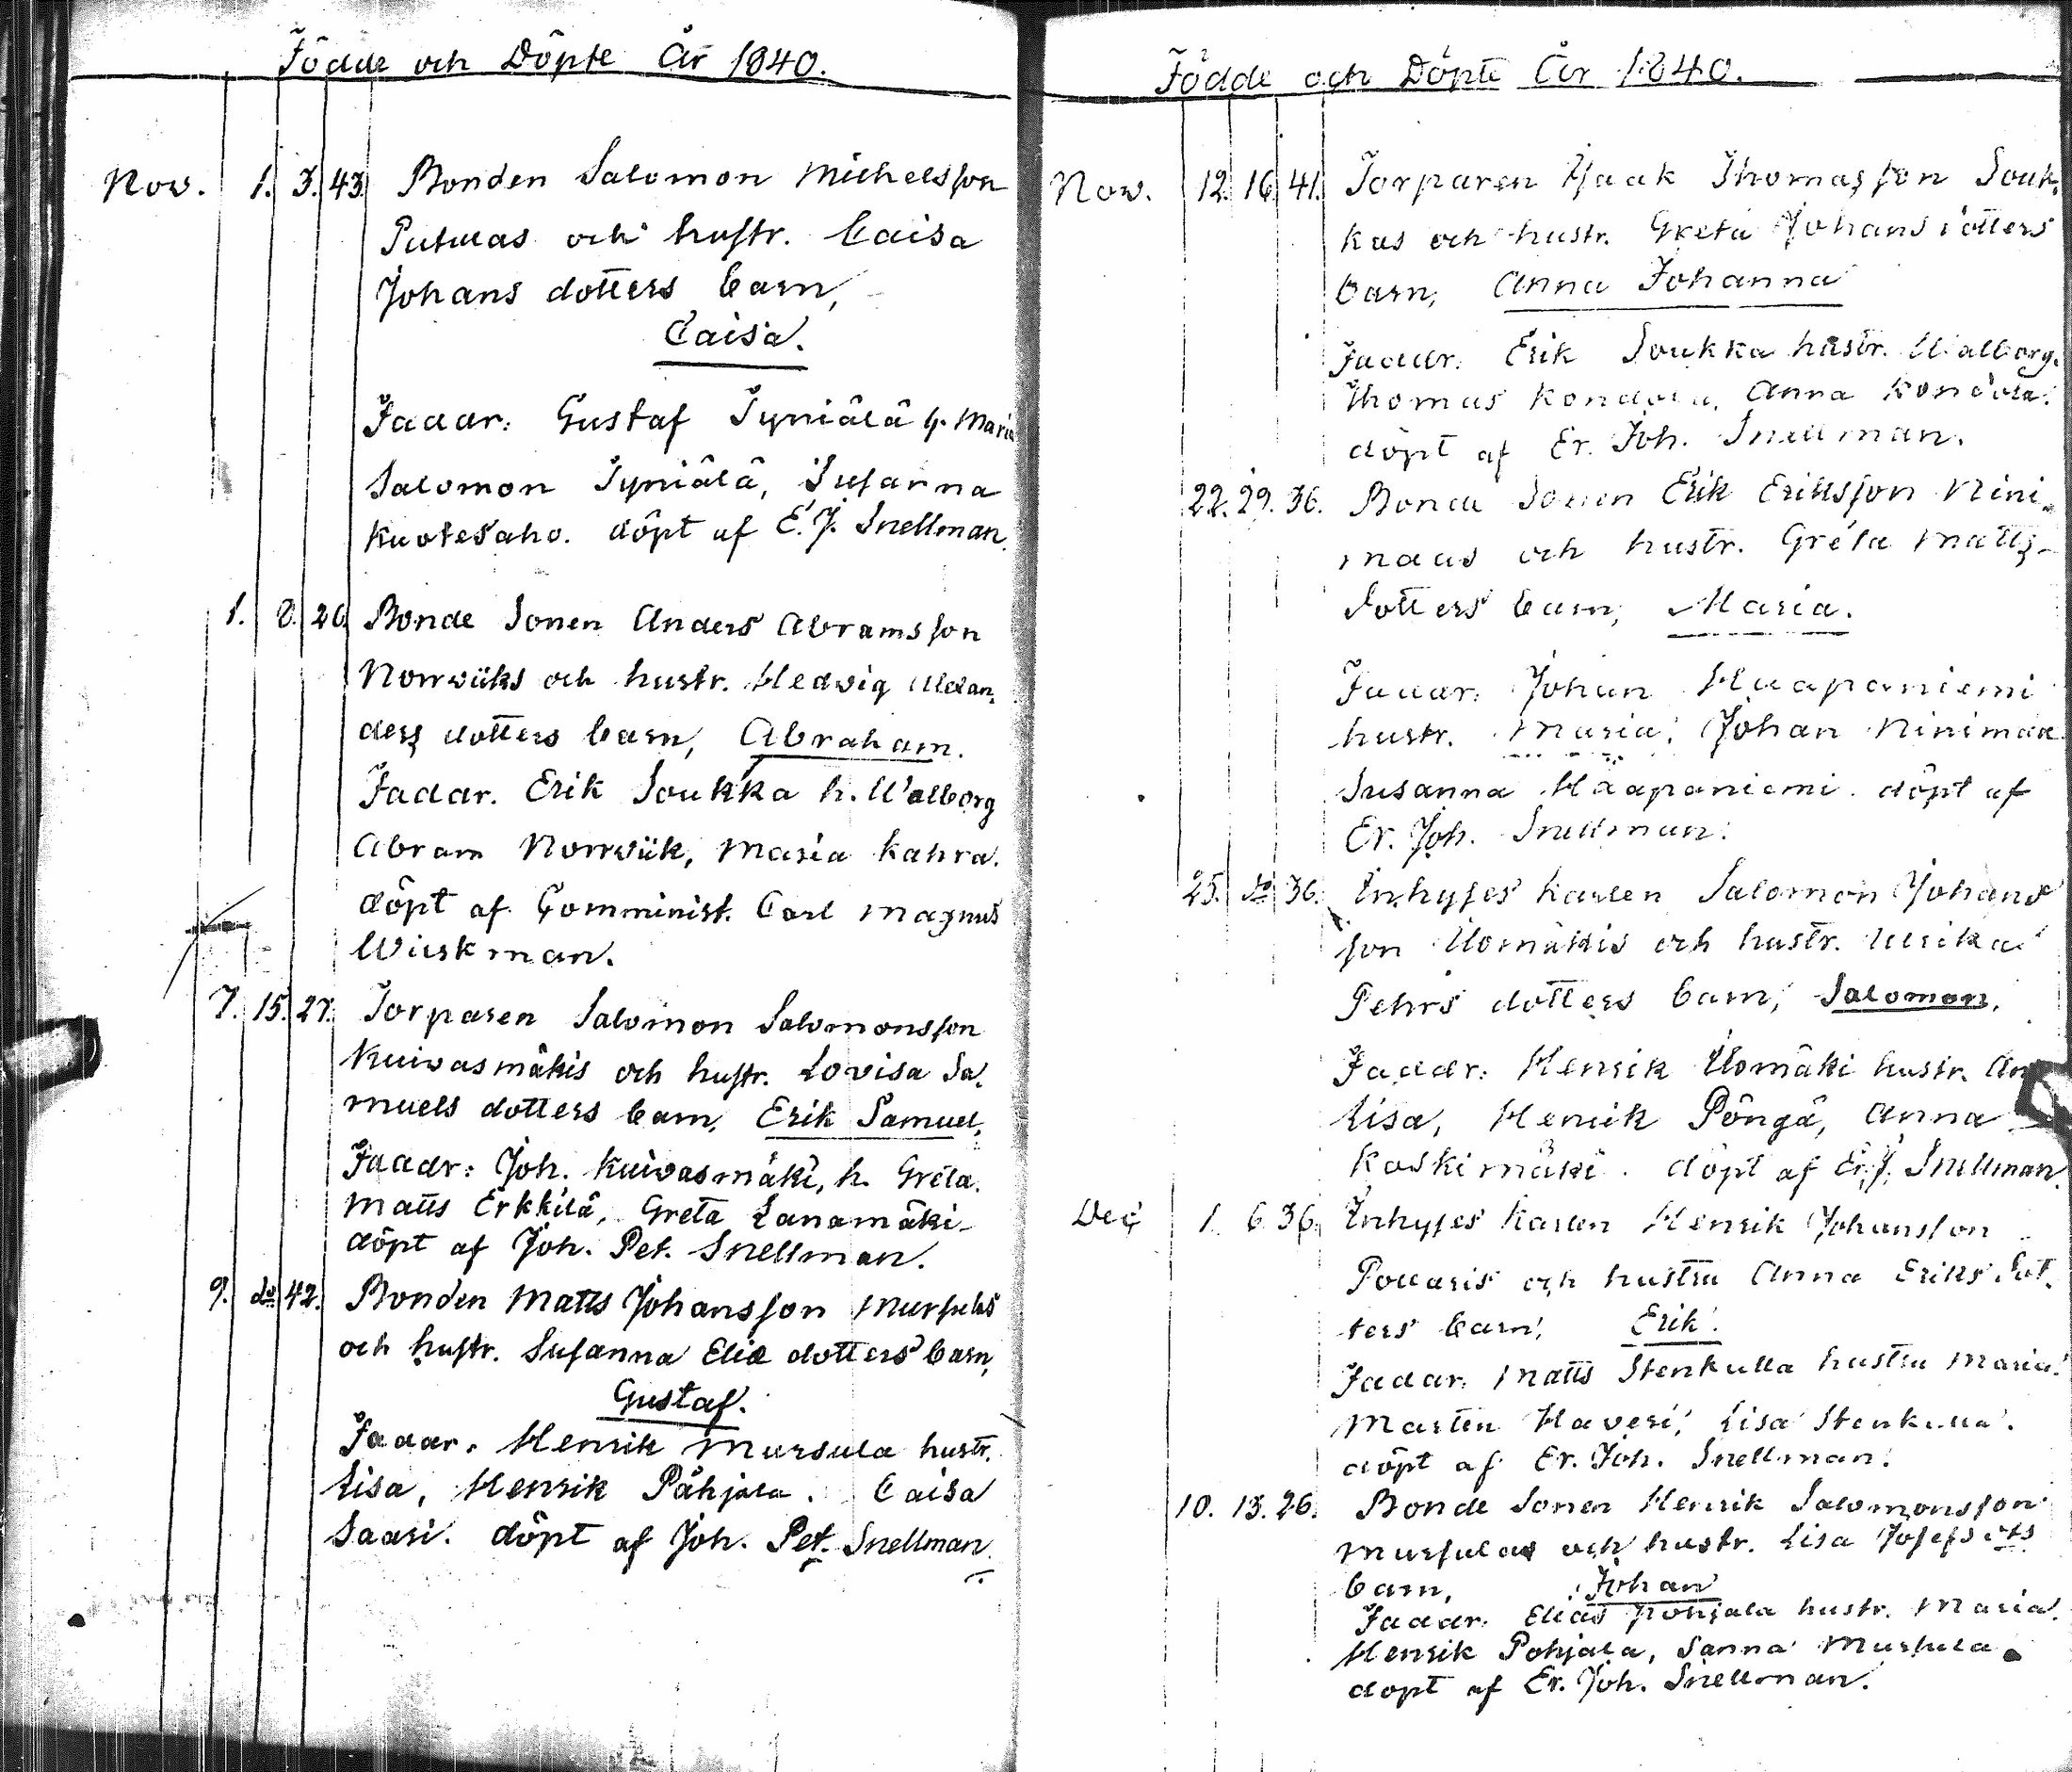 Födde och Döpte År 1840.
Nov. 1. 3. 43. Bonden Salomon Michelsson
Putulas och hustr. Caisa
Johans dotters barn,
Caisa.
Faddr: Gustaf Tyniälä h. Maria
Salomon Tyniälä, Susanna
Kuotesaho. döpt af E. J. Snellman.
1. 8. 26. Bonde Sonen Anders Abramsson
Norrviiks och hustr. Hedvig Alexan
ders dotters barn, Abraham.
Faddr. Erik Soukka h. Walborg
Abram Norrviik, Maria Kahra.
döpt af Comminist. Carl Magnus
Wiirkman.
7. 15. 27. Torparen Salomon Salomonsson
Kuivasmäkis och hustr. Lovisa Sa,
muels dotters barn, Erik Samuel,
Faddr: Joh. Kuivasmäki, h. Greta.
Matts Erkkilä, Greta Lanamäki
döpt af Joh. Pet. Snellman.
9. do 42. Bonden Matts Johansson Mursulas
och hustr. Susanna Eliæ dotters barn,
Gustaf.
Faddr. Henrik Mursula hustr.
Lisa, Henrik Påhjala. Caisa
Saari. döpt af Joh. Pet. Snellman.
Födde och Döpte År 1840.
Nov. 12. 16. 41. Torparen Isaak Thomasson Souk,
kas och hustr. Greta Johans dotters
barn, Anna Johanna
Faddr: Erik Soukka hustr. Walborg.
Thomas Kondola, Anna Kondola.
döpt af Er. Joh. Snellman.
22. 29. 36. Bonde Sonen Erik Eriksson Nini,
maas och hustr. Greta Matts
dotters barn, Maria.
Faddr: Johan Haapaniemi
hustr. Maria, Johan Ninimaa
Susanna Haapaniemi. döpt af
Er. Joh. Snellman.
25. do 36. Inhyses Karlen Salomon Johans
son Ilomäkis och hustr. Ulrika
Pehrs dotters barn, Salomon.
Faddr: Henrik Ilomäki hustr.
Lisa, Henrik Pöngä, Anna
Koskimäki. döpt af Er. J. Snellman.
Dec 1. 6. 36. Inhyses Karlen Henrik Johansson
Pouaris och hustru Anna Eriks dot,
ters barn, Erik.
Faddr: Matts Stenkulla hustru Maria.
Marten Haveri, Lisa Stenkulla.
döpt af Er. Joh. Snellman.
10. 13. 26. Bonde Sonen Henrik Salomonsson
Mursulas och hustr. Lisa Josefs dts
barn, Johan
Faddr: Elias Pohjala hustr. Maria.
Henrik Pohjala, Sanna Mursula.
dopt af Er. Joh. Snellman.